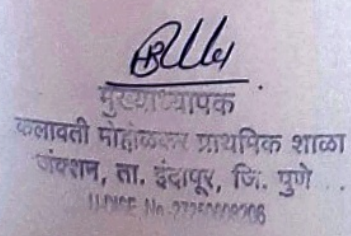 मुख्याध्यापक
कलावती मोहोळकर प्राथमिक शाळा
जंक्शन, ता. इंदापूर, जि. पुणे
U-DICE No.-27250608206